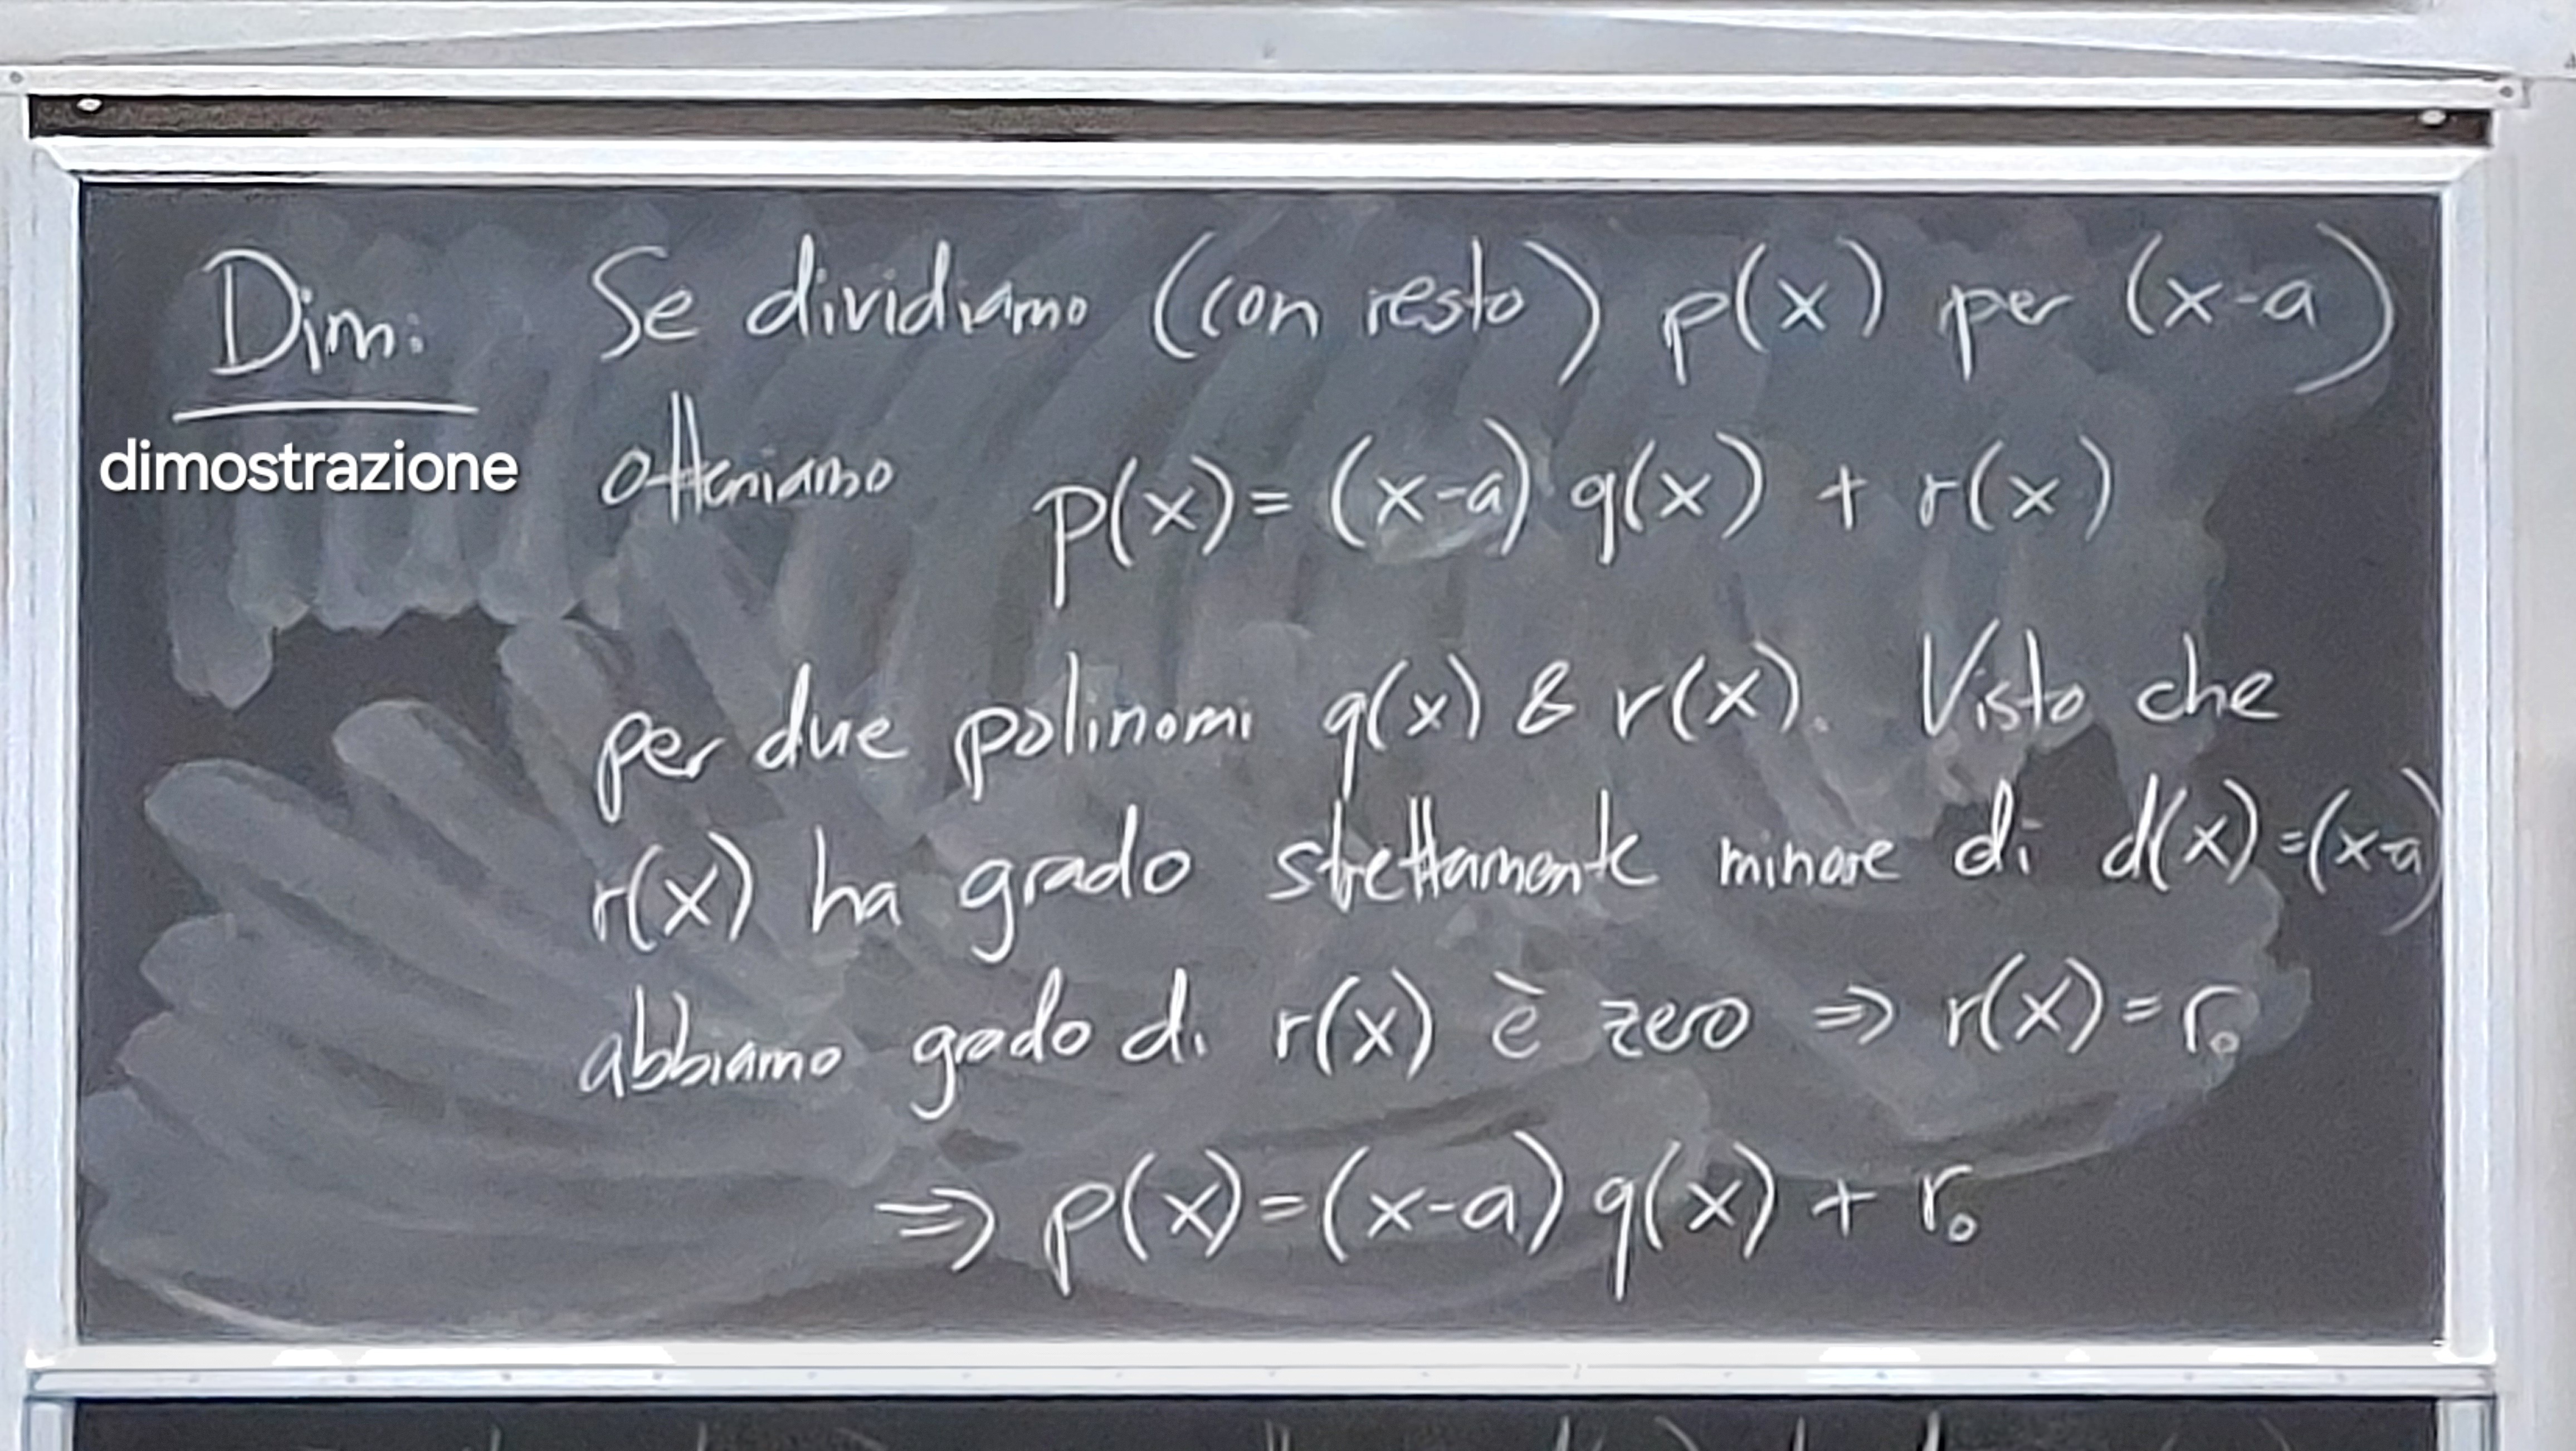 Dim: Se dividiamo (con resto) p(x) per (x-a)
dimostrazione
otteniamo p(x) = (x-a) q(x) + r(x)
per due polinomi q(x) & r(x). Visto che
r(x) ha grado strettamente minore di d(x) = (x-a)
abbiamo grado di r(x) è zero ⇒ r(x) = r₀
⇒ p(x) = (x-a) q(x) + r₀